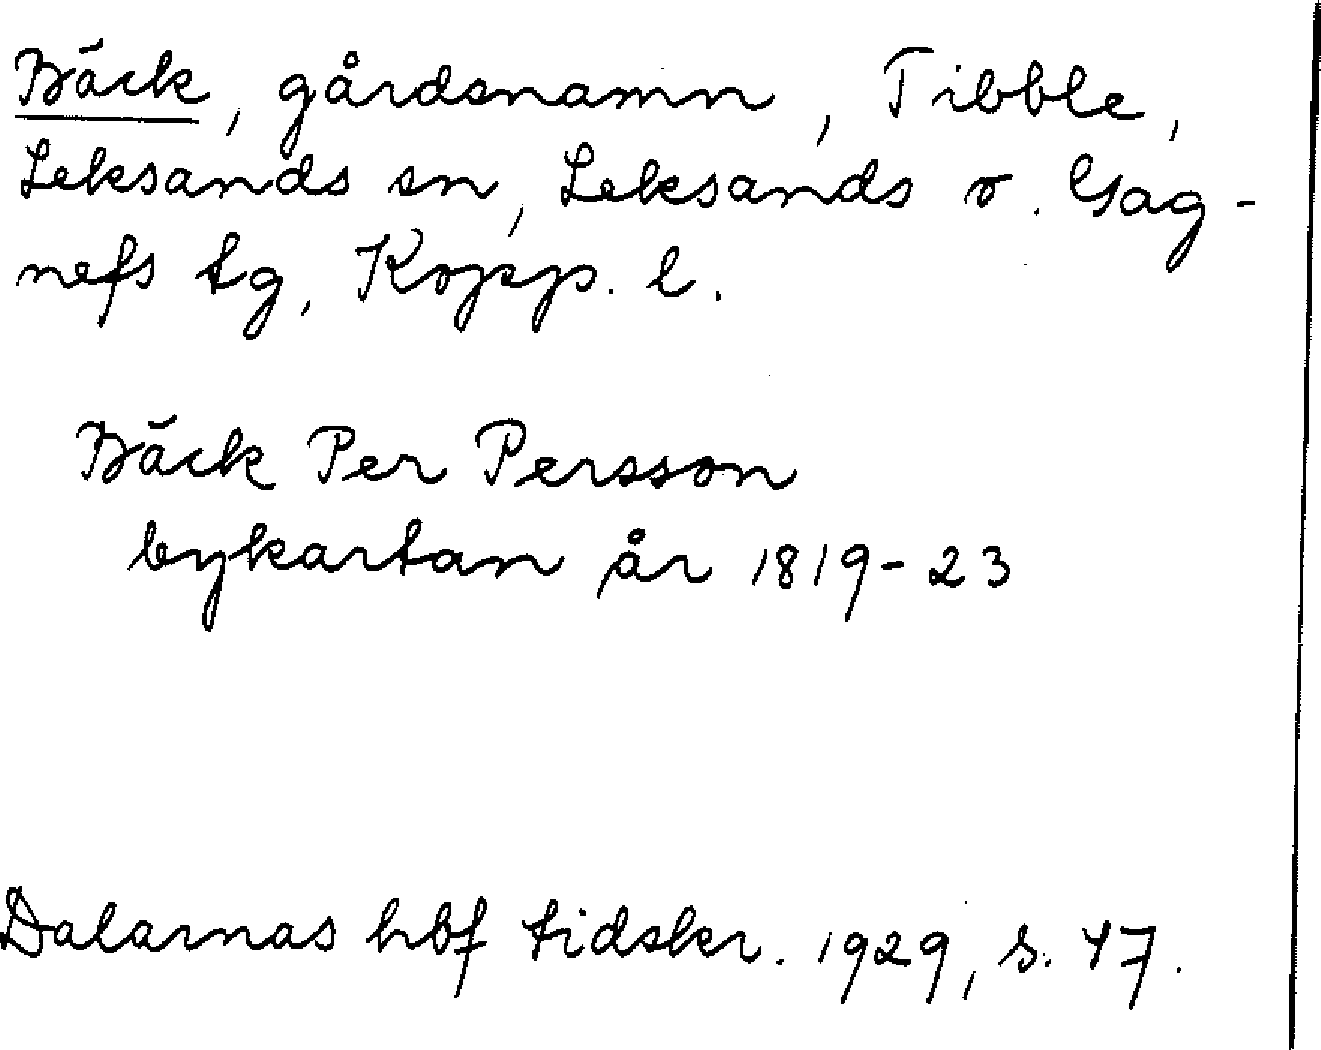 Bäck, gårdsnamn, Tibble,
Leksands sn, Leksands o. Gag-
nefs tg, Kopp. l.
Bäck Per Persson
bykartan år 1819-23
Dalarnas hbf tidskr. 1929, s. 47.